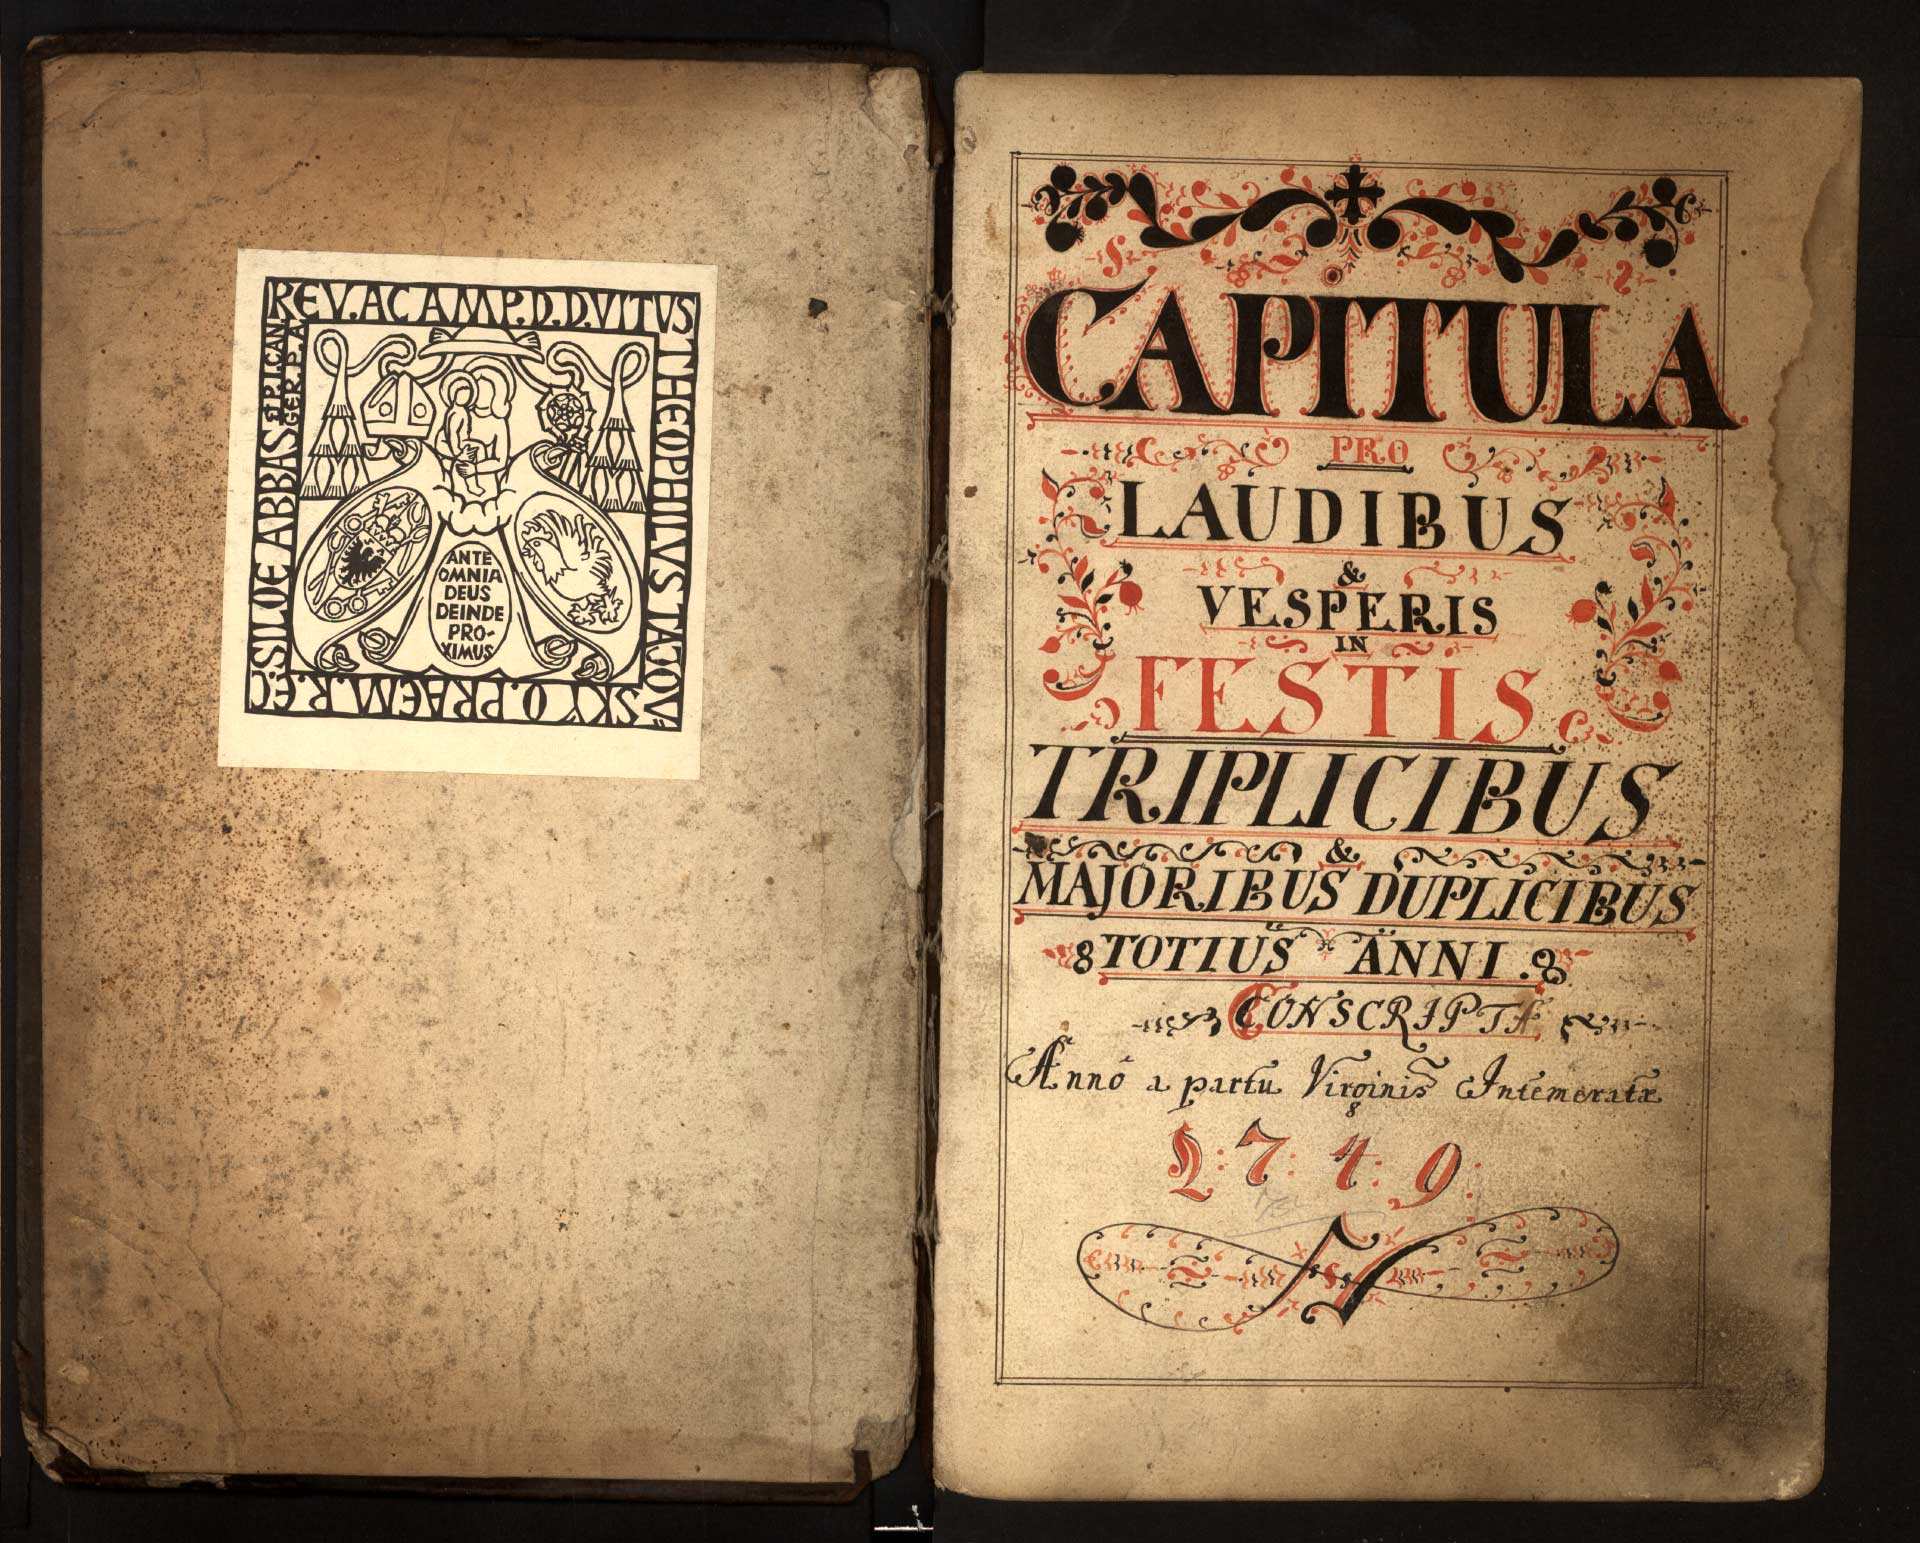 REV. AC AMP. D. D. VITUS
THEOPHILVS TAJOV
SKÝ O. PRAEM. R. EC.
SILOE ABBAS EPI. CAN.
GER. P. P. A
ANTE
OMNIA
DEUS
DEINDE
PRO-
XIMUS
CAPITULA
PRO
LAUDIBUS
&
VESPERIS
IN
FESTIS
TRIPLICIBUS
&
MAJORIBUS DUPLICIBUS
TOTIUS ANNI.
CONSCRIPTA
Anno a partu Virginis Intemeratæ
1:7:4:9: